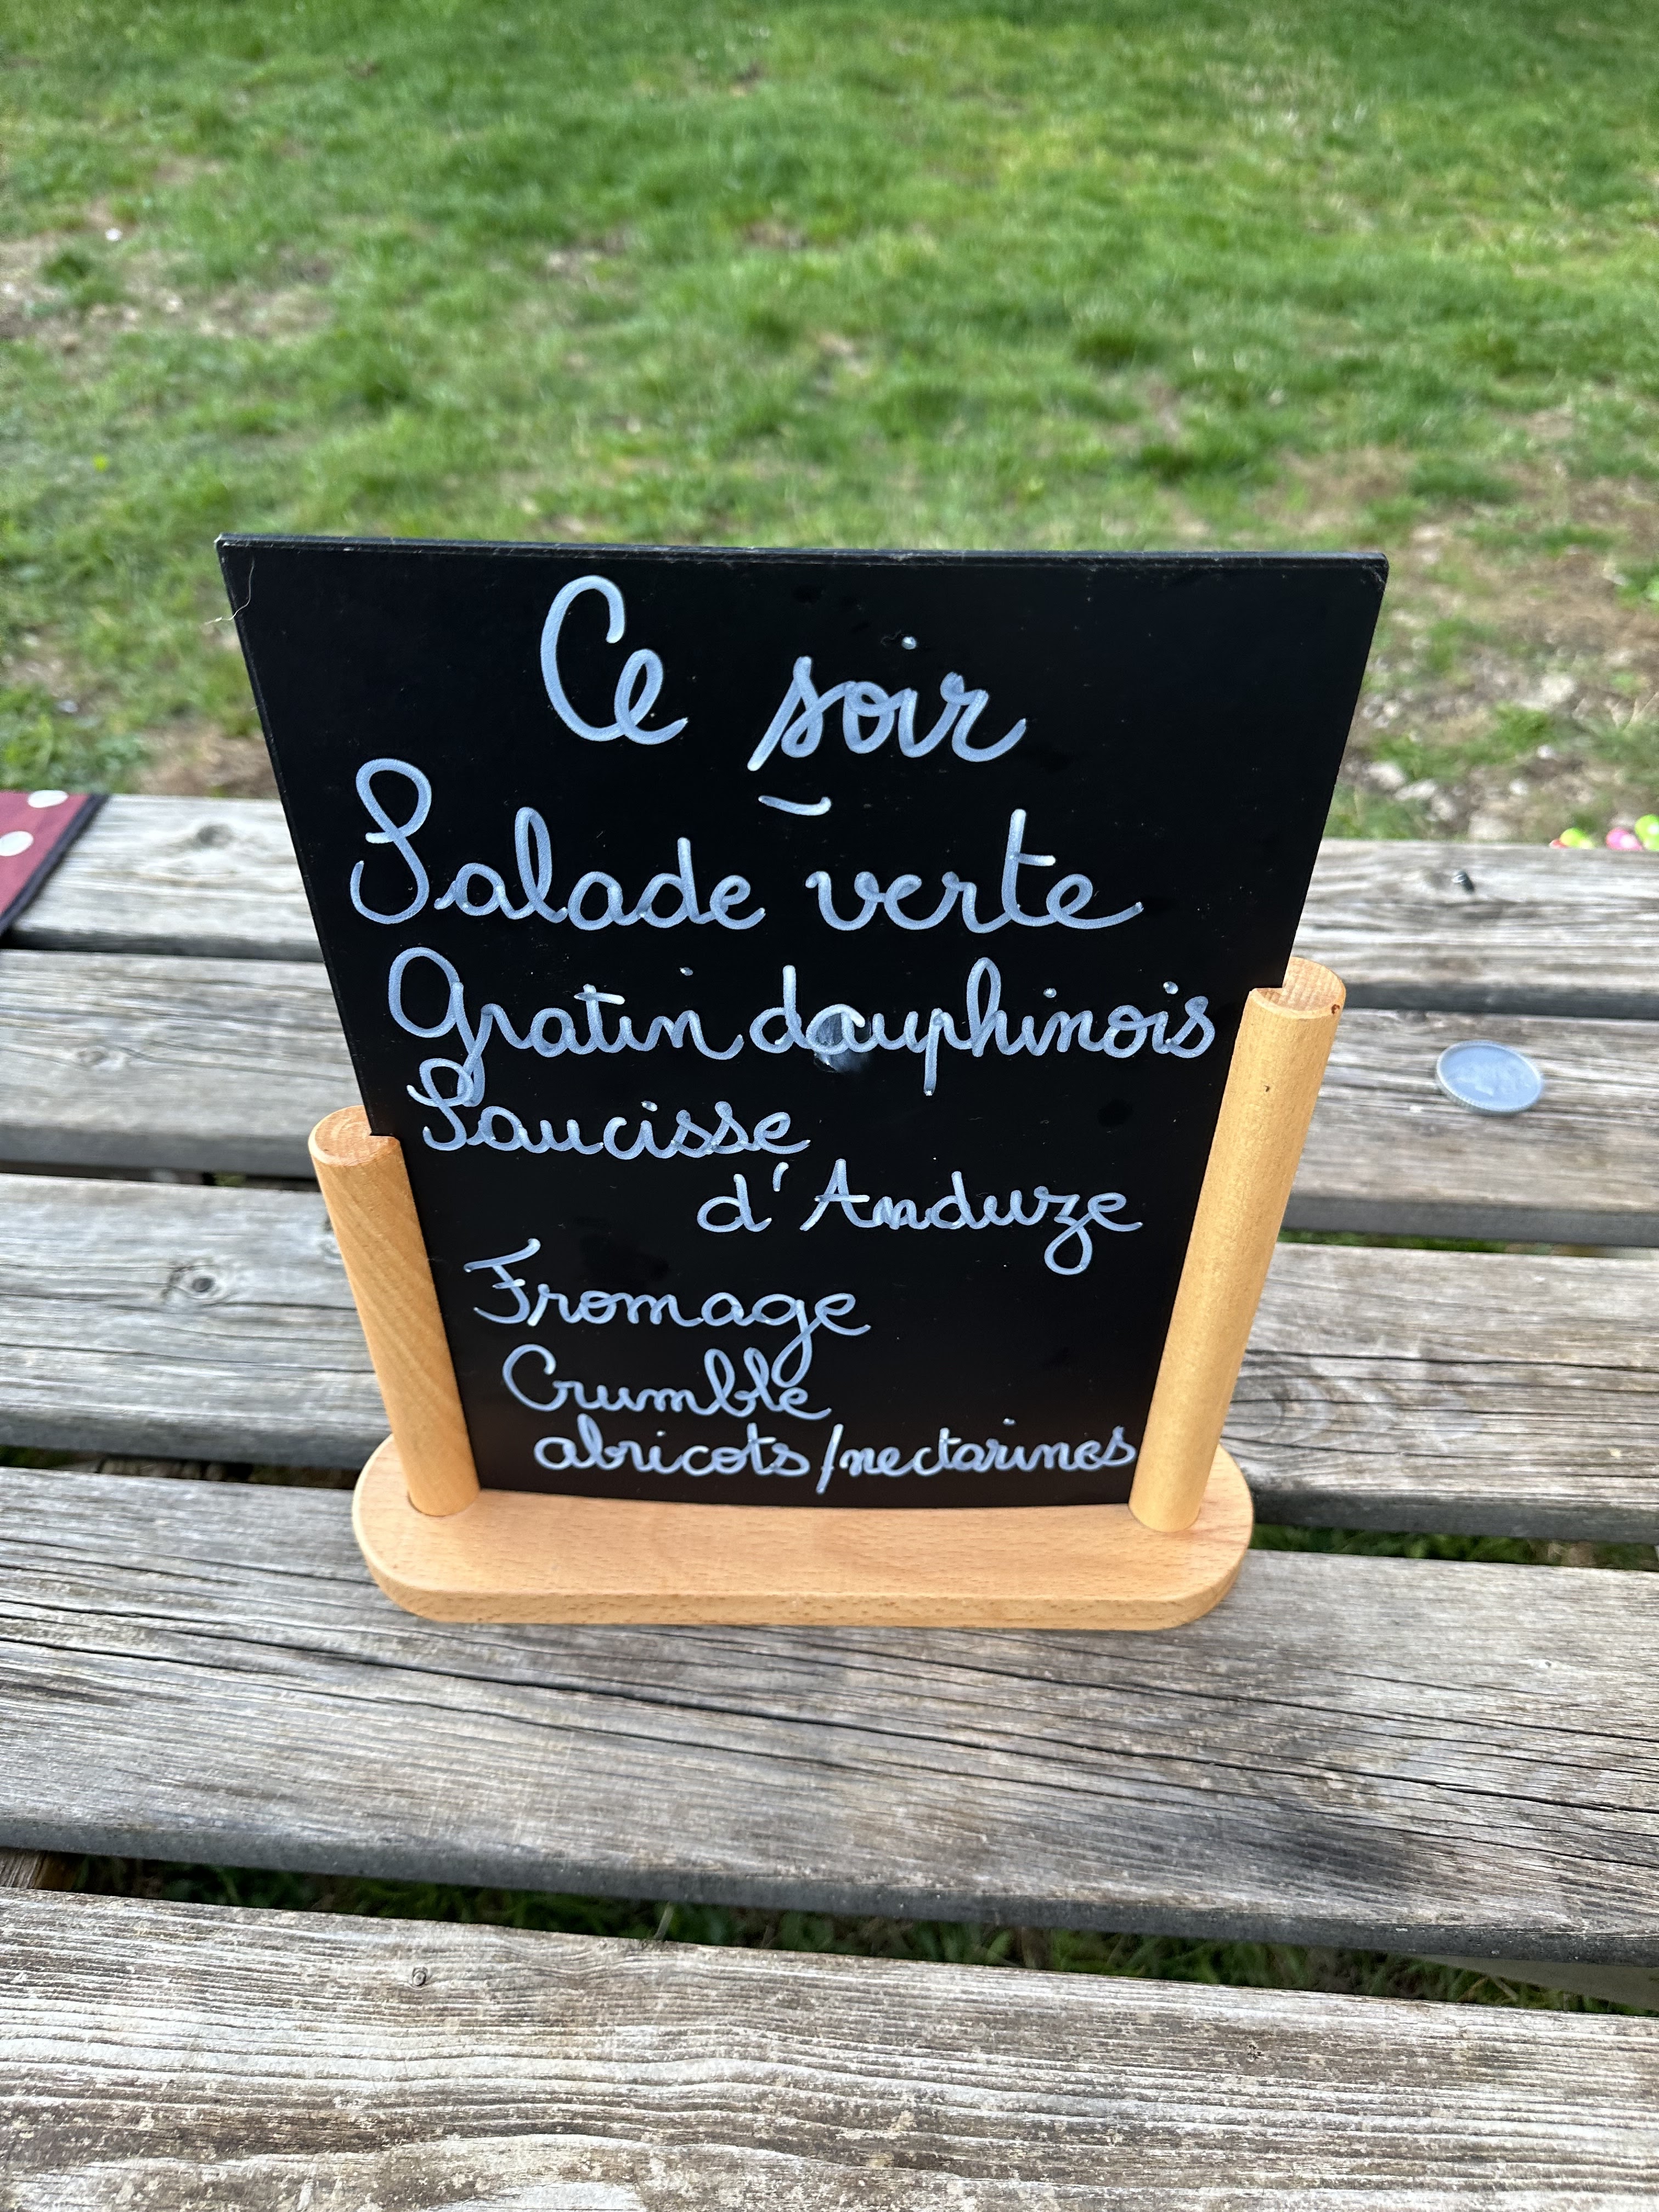 Ce soir
Salade verte
Gratin dauphinois
Saucisse
d'Anduze
Fromage
Crumble
abricots/nectarines